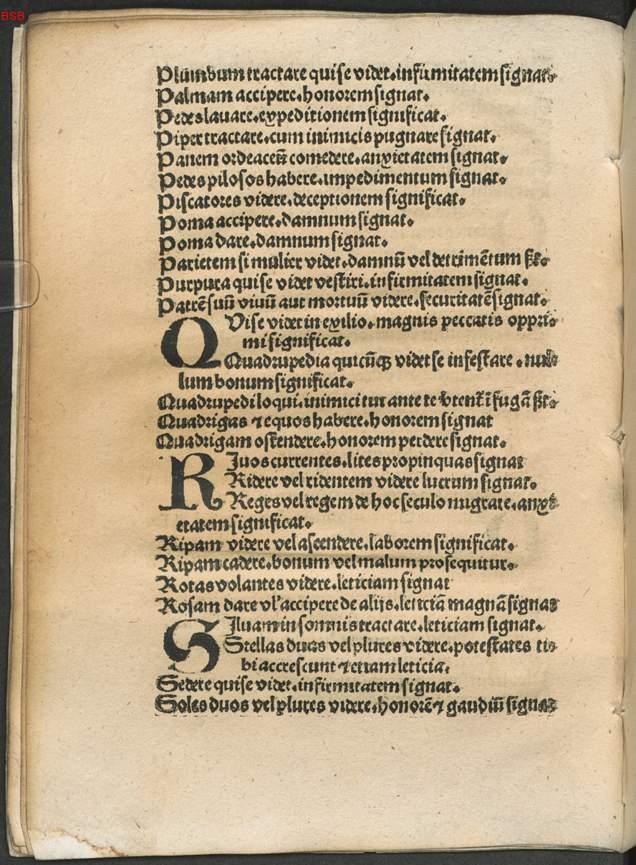 BSB
Plumbum tractare qui se videt.infirmitatem signat.
Palmam accipere.honorem signat.
Pedes lauare.expeditionem significat.
Piper tractare.cum inimicis pugnare signat.
Panem ordeaceū comedere.anxietatem signat.
Pedes pilosos habere.impedimentum signat.
Piscatores videre.deceptionem significat.
Poma accipere.damnum signat.
Poma dare.damnum signat.
Parietem si mulier videt.damnū vel detrimētum
Purpura qui se videt vestiri.infirmitatem signat.
Patrē suū viuū aut mortuū videre.securitatē signat.
QVi se videt in exilio.magnis peccatis oppri⸗
mi significat.
Quadrupedia quicūqꝫ videt se infestare.nul⸗
lum bonum significat.
Quadrupedi loqui.inimici tui ante te in fugā
Quadrigas ⁊ equos habere.honorem signat
Quadrigam ostendere.honorem perdere signat.
RIuos currentes.lites propinquas signat
Ridere vel ridentem videre lucrum signat.
Reges vel regem de hoc seculo migrare.anxi⸗
etatem significat.
Ripam videre vel ascendere.laborem significat.
Ripam cadere.bonum vel malum prosequitur.
Rotas volantes videre.leticiam signat
Rosam dare vl'accipere de alijs.leticiā magnā signat
SIluam in somnis tractare.leticiam signat.
Stellas duas vel plures videre.potestates ti⸗
bi accrescunt ⁊ etiam leticia.
Sedere qui se videt.infirmitatem signat.
Soles duos vel plures videre.honorē ⁊ gaudiū signat